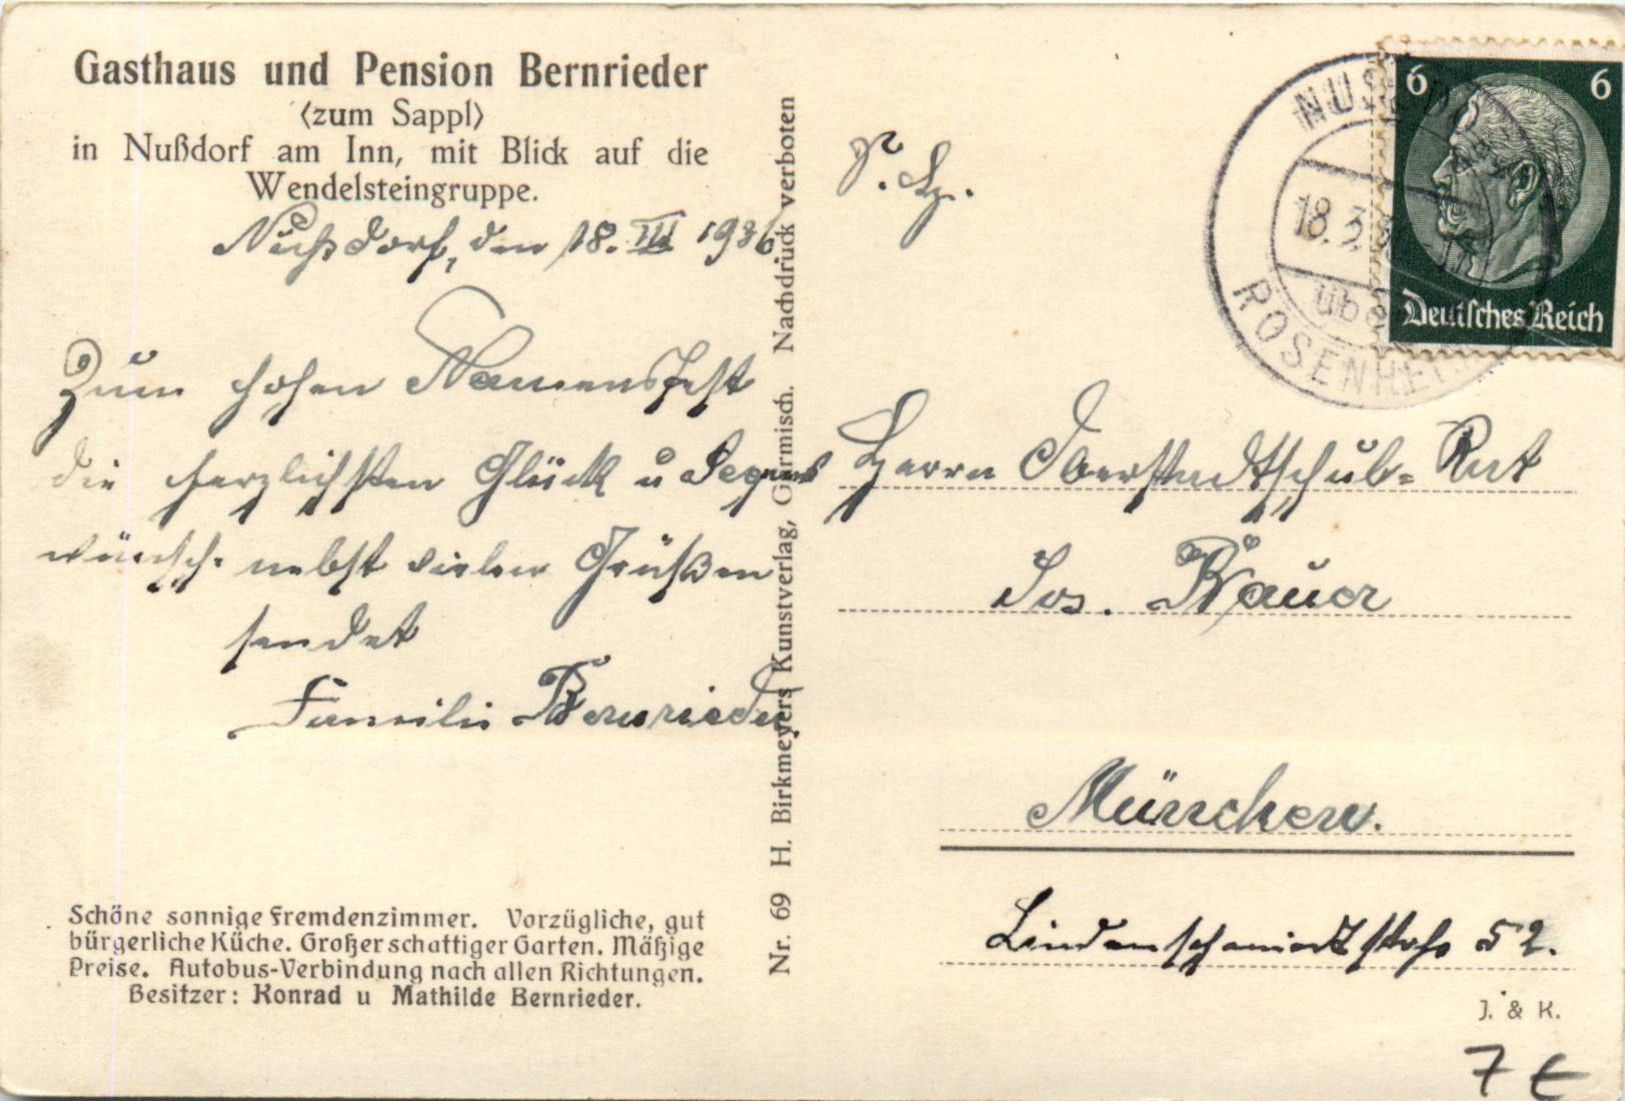 Gasthaus und Pension Bernrieder
(zum Sappl)
in Nußdorf am Inn, mit Blick auf die
Wendelsteingruppe.
Nußdorf, den 18. III 1936
Zum hohen Namensfest
die herzlichsten Glück u Segens
wünsch. nebst vielen Grüßen
sendet
Familie Bernrieder
Schöne sonnige Fremdenzimmer. Vorzügliche, gut
bürgerliche Küche. Großer schattiger Garten. Mäßige
Preise. Autobus-Verbindung nach allen Richtungen.
Besitzer: Konrad u Mathilde Bernrieder.
Nr. 69 H. Birkmeyers Kunstverlag, Garmisch. Nachdruck verboten
6 6
Deutsches Reich
18. 3.
über
ROSENHEIM
Herrn Oberstadtschul-Rat
Jos. Bauer
München.
Lindenschmidtstrße 52.
J. & K.
7 €